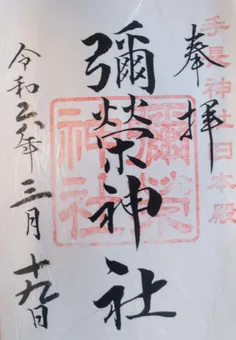 奉拝
手長神社旧本殿
彌榮神社
彌榮神社
令和六年三月十九日